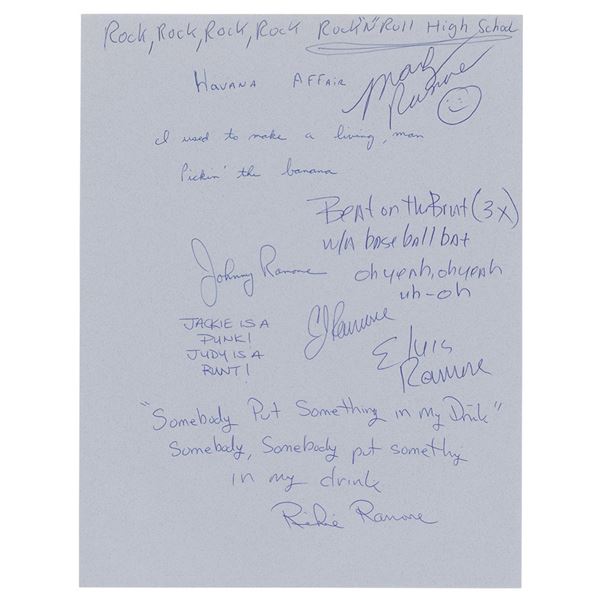 Rock, Rock, Rock, Rock Rock"N"Roll High School
Marky Ramone
Havana Affair
I used to make a living, man
Pickin' the banana
Beat on the Brat (3x)
w/a baseball bat
oh yeah, oh yeah
uh-oh
Johnny Ramone
CJ Ramone
JACKIE IS A
PUNK!
JUDY IS A
RUNT!
Elvis
Ramone
"Somebody Put Something in my Drink"
Somebody, Somebody put somethig
in my drink
Richie Ramone